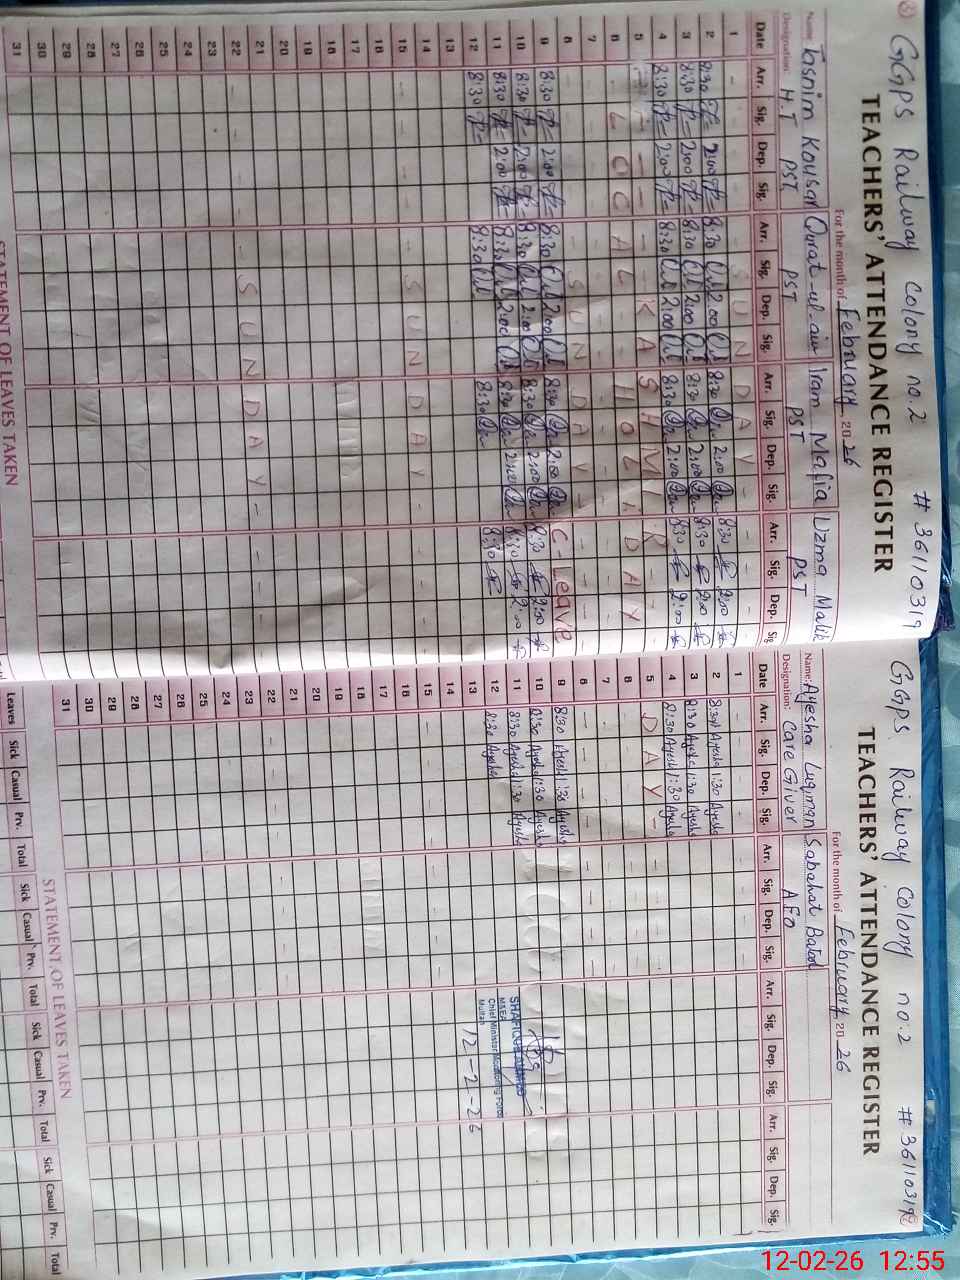 GGPS Railway Colony no.2 # 36110319
TEACHERS' ATTENDANCE REGISTER
For the month of February 2026
Name: Tasnim Kousar Qurat-ul-ain Iram Mafia Uzma Malik
Designation: H.T PST PST PST PST
Date Arr. Sig. Dep. Sig. Arr. Sig. Dep. Sig. Arr. Sig. Dep. Sig. Arr. Sig. Dep. Sig
1 SUNDAY
2 8:30 2:00 8:30 2:00 8:30 2:00 8:30 2:00
3 8:30 2:00 8:30 2:00 8:30 2:00 8:30 2:00
4 8:30 2:00 8:30 2:00 8:30 2:00 8:30 2:00
5 KASHMIR
6 LOCAL HOLIDAY
7
8 SUNDAY
9 8:30 2:00 8:30 2:00 8:30 2:00 C-Leave
10 8:30 2:00 8:30 2:00 8:30 2:00 8:30 2:00
11 8:30 2:00 8:30 2:00 8:30 2:00 8:30 2:00
12 8:30 8:30 8:30 8:30
13
14
15 SUNDAY
16
17
18
19
20
21
22 SUNDAY
23
24
25
26
27
28
29
30
31
STATEMENT OF LEAVES TAKEN
GGPS Railway Colony no.2 # 36110319
TEACHERS' ATTENDANCE REGISTER
For the month of February 2026
Name: Ayesha Luqman Sabahat Batool
Designation: Care Giver AEO
Date Arr. Sig. Dep. Sig. Arr. Sig. Dep. Sig. Arr. Sig. Dep. Sig. Arr. Sig. Dep. Sig.
1
2 8:30 Ayesha 1:30 Ayesha
3 8:30 Ayesha 1:30 Ayesha
4 8:30 Ayesha 1:30 Ayesha
5 DAY
6
7
8
9 8:30 Ayesha 1:30 Ayesha
10 8:30 Ayesha 1:30 Ayesha
11 8:30 Ayesha 1:30 Ayesha
12 8:30 Ayesha
13
14
15
16
17
18
19
20
21
22
23
24
25
26
27
28
29
30
31
MEA
Chief Minister Monitoring Force
Multan
12-2-26
STATEMENT OF LEAVES TAKEN
Leaves Sick Casual Prv. Total Sick Casual Prv. Total Sick Casual Prv. Total Sick Casual Prv. Total
12-02-26 12:55